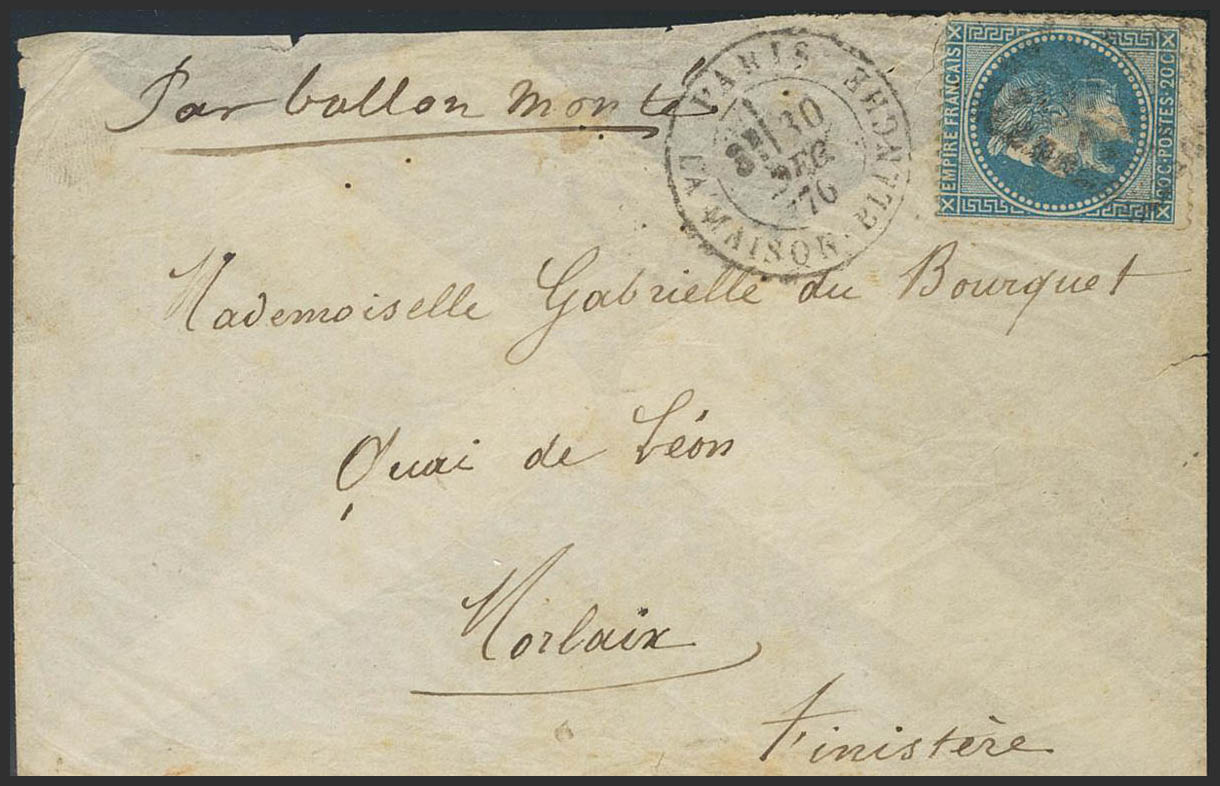 Par ballon monté
PARIS
LA MAISON
30
DEC
70
EMPIRE FRANÇAIS
20C·POSTES 20C
Mademoiselle Gabrielle du Bourquet
Quai de Léon
Morlaix
Finistère